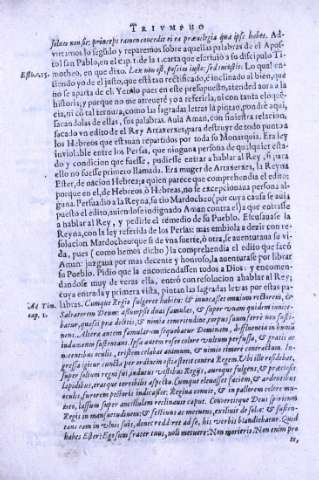 TRIVMPHO
solutus non sit; princeps tamen
viramos lo segundo y reparemos sobre aquellas palabras de el Apos-
tol san Pablo, en el cap. 1. de la 1. carta que escriuio a su discipulo Ti-
moteo, en que dixo. Lex non est, posita iusto: sed iniustis. Lo qual en-
siendo yo de el justo, que està tan rectificado, è inclinado al bien, que
no se parta de el. Y enlo pues en este presupuesto, atended aora a la
historia; y porque no me atreuerè yo a referirla, ni con tanta elo que-
cia, ni có tal ternura, como las sagradas letras la pintan, podrè aqui,
sacandolas de ellas, sus palabras. Auia Aman, con siniestra relacion,
sacado vn edito de el Rey Artaxerxes, para destruyr de todo punto a
los Hebreos que estauan repartidos por toda su Monarquia. Era ley
inviolable entre los Persas, que ninguna persona de qualquier esta-
do y condicion que fuesse, pudiesse entrar a hablar al Rey, si para
ello no fuesse primero llamada. Era muger de Artaxerxes, la Reyna
Ester, de nacion Hebrea; a quien parece que comprehendia el edito;
porque en el, de Hebreos ò Hebreas, no se excepcionaua persona al-
guna. Persuadio a la Reyna, su tio Mardocheo (por cuya causa se auia
puesto el edito, auiendose indignado Aman contra el) a que entrasse
a hablar al Rey, y pedirle el remedio de su Pueblo. Escusauase la
Reyna, con la ley referida de los Persas: mas embiola a dezir con re-
solucion Mardocheo que si de vna suerte, ò otra, se auenturaua su vi-
da, pues (como hemos dicho) la comprehendia el edito que sacò
Aman: juzgaua por mas decente y honroso, la auenturasse por librar
su Pueblo. Pidio que la encomendassen todos a Dios: y encomen-
dandose muy de veras ella, entrò con resolucion a hablar al Rey;
cuya entrada y primera vista, pintan las sagradas letras por estas pa-
labras. Cumque Regio fulgeret habitu: & inuocasset omnium rectorem, &
Saluatorem Deum: assumpsit duas famulas, & super vnam quidem innite-
batur, quasi præ delitijs, & nimia teneritudine corpus suum ferre non susti-
nens. Altera autem famularum sequebatur Dominam, defluentia in humũ
indumenta sustentans. Ipsa autem roseo colore vultum perfusa, & gratis ac
nitentibus oculis, tristem celabat animum, & nimio timore contractum. In-
gressa igitur cuncta per ordinem ostia stetit contra Regem. Vbi ille residebat,
super solium regni sui, indutus vestibus Regijs, auroque fulgens, & præciosis
lapidibus, eratque terribilis aspectu. Cumque eleuasset faciem, & ardentibus
oculis, furorem pectoris indicasset: Regina corruit, & in pallorem colore mu-
tato, lassum super ancillulam reclinauit caput. Conuertitque Deus spiritum
Regis in mansuetudinem: & festinus ac metuens, exiliuit de solio: & susten-
tans eam in vlnis suis, donec rediret ad se, his verbis blandiebatur. Quid
habes Ester? Ego sum frater tuus, noli metuere: Non morieris. Non enim pro
te,
Ad Tim.
cap. 1.